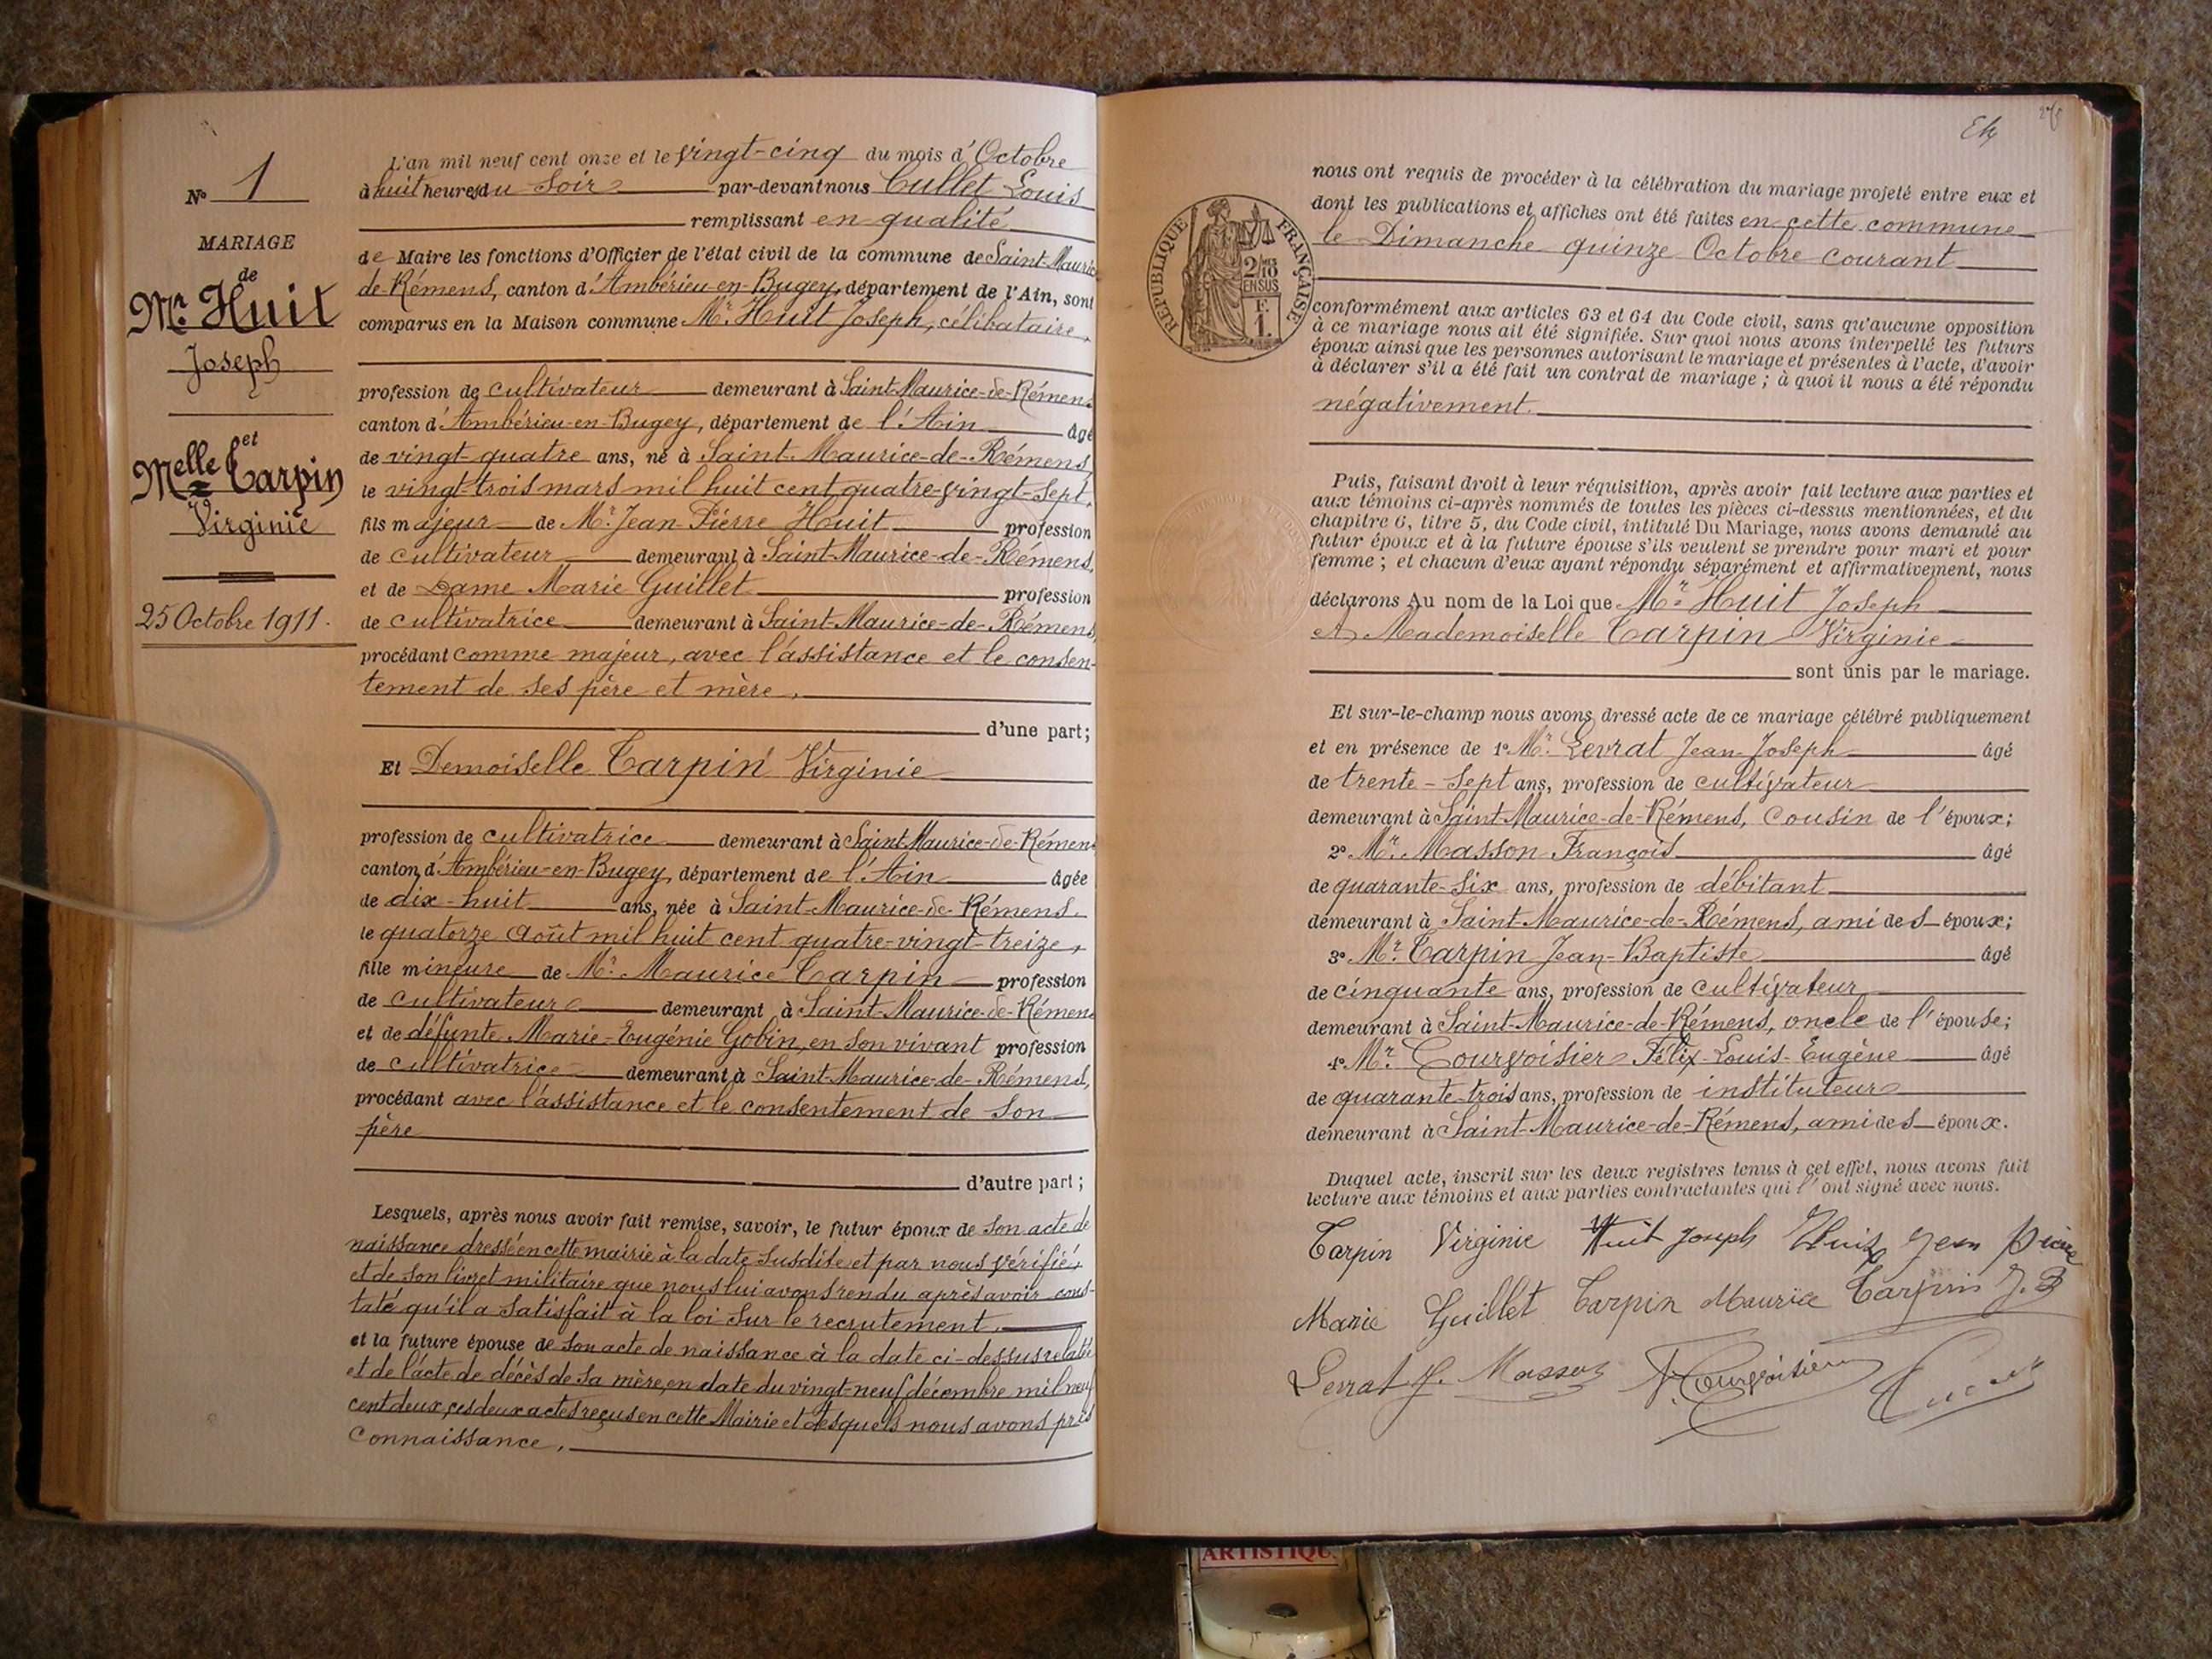 N° 1
MARIAGE
de
Mr. Huit
Joseph
et
Melle Carpin
Virginie
25 Octobre 1911.
L'an mil neuf cent onze et le vingt-cinq du mois d'Octobre
à huit heures du soir par-devant nous Cullet Louis
remplissant en qualité
de Maire les fonctions d'Officier de l'état civil de la commune de Saint-Maurice
de-Rémens, canton d'Ambérieu-en-Bugey, département de l'Ain, sont
comparus en la Maison commune Mr. Huit Joseph, célibataire,
profession de cultivateur demeurant à Saint-Maurice-de-Rémens
canton d'Ambérieu-en-Bugey, département de l'Ain âgé
de vingt-quatre ans, né à Saint-Maurice-de-Rémens,
le vingt-trois mars mil huit cent quatre-vingt-sept,
fils majeur de Mr. Jean-Pierre Huit profession
de cultivateur demeurant à Saint-Maurice-de-Rémens,
et de Dame Marie Guillet profession
de cultivatrice demeurant à Saint-Maurice-de-Rémens,
procédant comme majeur, avec l'assistance et le consen-
tement de ses père et mère,
d'une part;
Et Demoiselle Carpin Virginie
profession de cultivatrice demeurant à Saint-Maurice-de-Rémens
canton d'Ambérieu-en-Bugey, département de l'Ain âgée
de dix-huit ans, née à Saint-Maurice-de-Rémens.
le quatorze Août mil huit cent quatre-vingt-treize,
fille mineure de Mr. Maurice Carpin profession
de cultivateur demeurant à Saint-Maurice-de-Rémens
et de défunte Marie-Eugénie Gobin, en son vivant profession
de cultivatrice demeurant à Saint-Maurice-de-Rémens,
procédant avec l'assistance et le consentement de son
père
d'autre part;
Lesquels, après nous avoir fait remise, savoir, le futur époux de son acte de
naissance dressé en cette mairie à la date susdite et par nous vérifié,
et de son livret militaire que nous lui avons rendu après avoir cons-
taté qu'il a satisfait à la loi sur le recrutement.
et la future épouse de son acte de naissance à la date ci-dessus relatée
et de l'acte de décès de sa mère, en date du vingt-neuf décembre mil neuf
cent deux, ces deux actes reçus en cette Mairie et desquels nous avons pris
connaissance,
RÉPUBLIQUE FRANÇAISE
2/10 MES
EN SUS
F.
1.
nous ont requis de procéder à la célébration du mariage projeté entre eux et
dont les publications et affiches ont été faites en cette commune
le Dimanche quinze Octobre courant
conformément aux articles 63 et 64 du Code civil, sans qu'aucune opposition
à ce mariage nous ait été signifiée. Sur quoi nous avons interpellé les futurs
époux ainsi que les personnes autorisant le mariage et présentes à l'acte, d'avoir
à déclarer s'il a été fait un contrat de mariage; à quoi il nous a été répondu
négativement.
Puis, faisant droit à leur réquisition, après avoir fait lecture aux parties et
aux témoins ci-après nommés de toutes les pièces ci-dessus mentionnées, et du
chapitre 6, titre 5, du Code civil, intitulé Du Mariage, nous avons demandé au
futur époux et à la future épouse s'ils veulent se prendre pour mari et pour
femme; et chacun d'eux ayant répondu séparément et affirmativement, nous
déclarons Au nom de la Loi que Mr. Huit Joseph
et Mademoiselle Carpin Virginie
sont unis par le mariage.
Et sur-le-champ nous avons dressé acte de ce mariage célébré publiquement
et en présence de 1° Mr. Levrat Jean-Joseph âgé
de trente-sept ans, profession de cultivateur
demeurant à Saint-Maurice-de-Rémens, cousin de l'époux;
2° Mr. Masson François âgé
de quarante-six ans, profession de débitant
demeurant à Saint-Maurice-de-Rémens, ami des époux;
3° Mr. Carpin Jean-Baptiste âgé
de cinquante ans, profession de cultivateur
demeurant à Saint-Maurice-de-Rémens, oncle de l'épouse;
4° Mr. Courvoisier Félix-Louis-Eugène âgé
de quarante-trois ans, profession de instituteur
demeurant à Saint-Maurice-de-Rémens, ami des époux.
Duquel acte, inscrit sur les deux registres tenus à cet effet, nous avons fait
lecture aux témoins et aux parties contractantes qui l'ont signé avec nous.
Carpin Virginie Huit Joseph Huit Jean Pierre
Marie Guillet Carpin Maurice Carpin J. B
Levrat J. Masson F. Courvoisier
ARTISTIQU